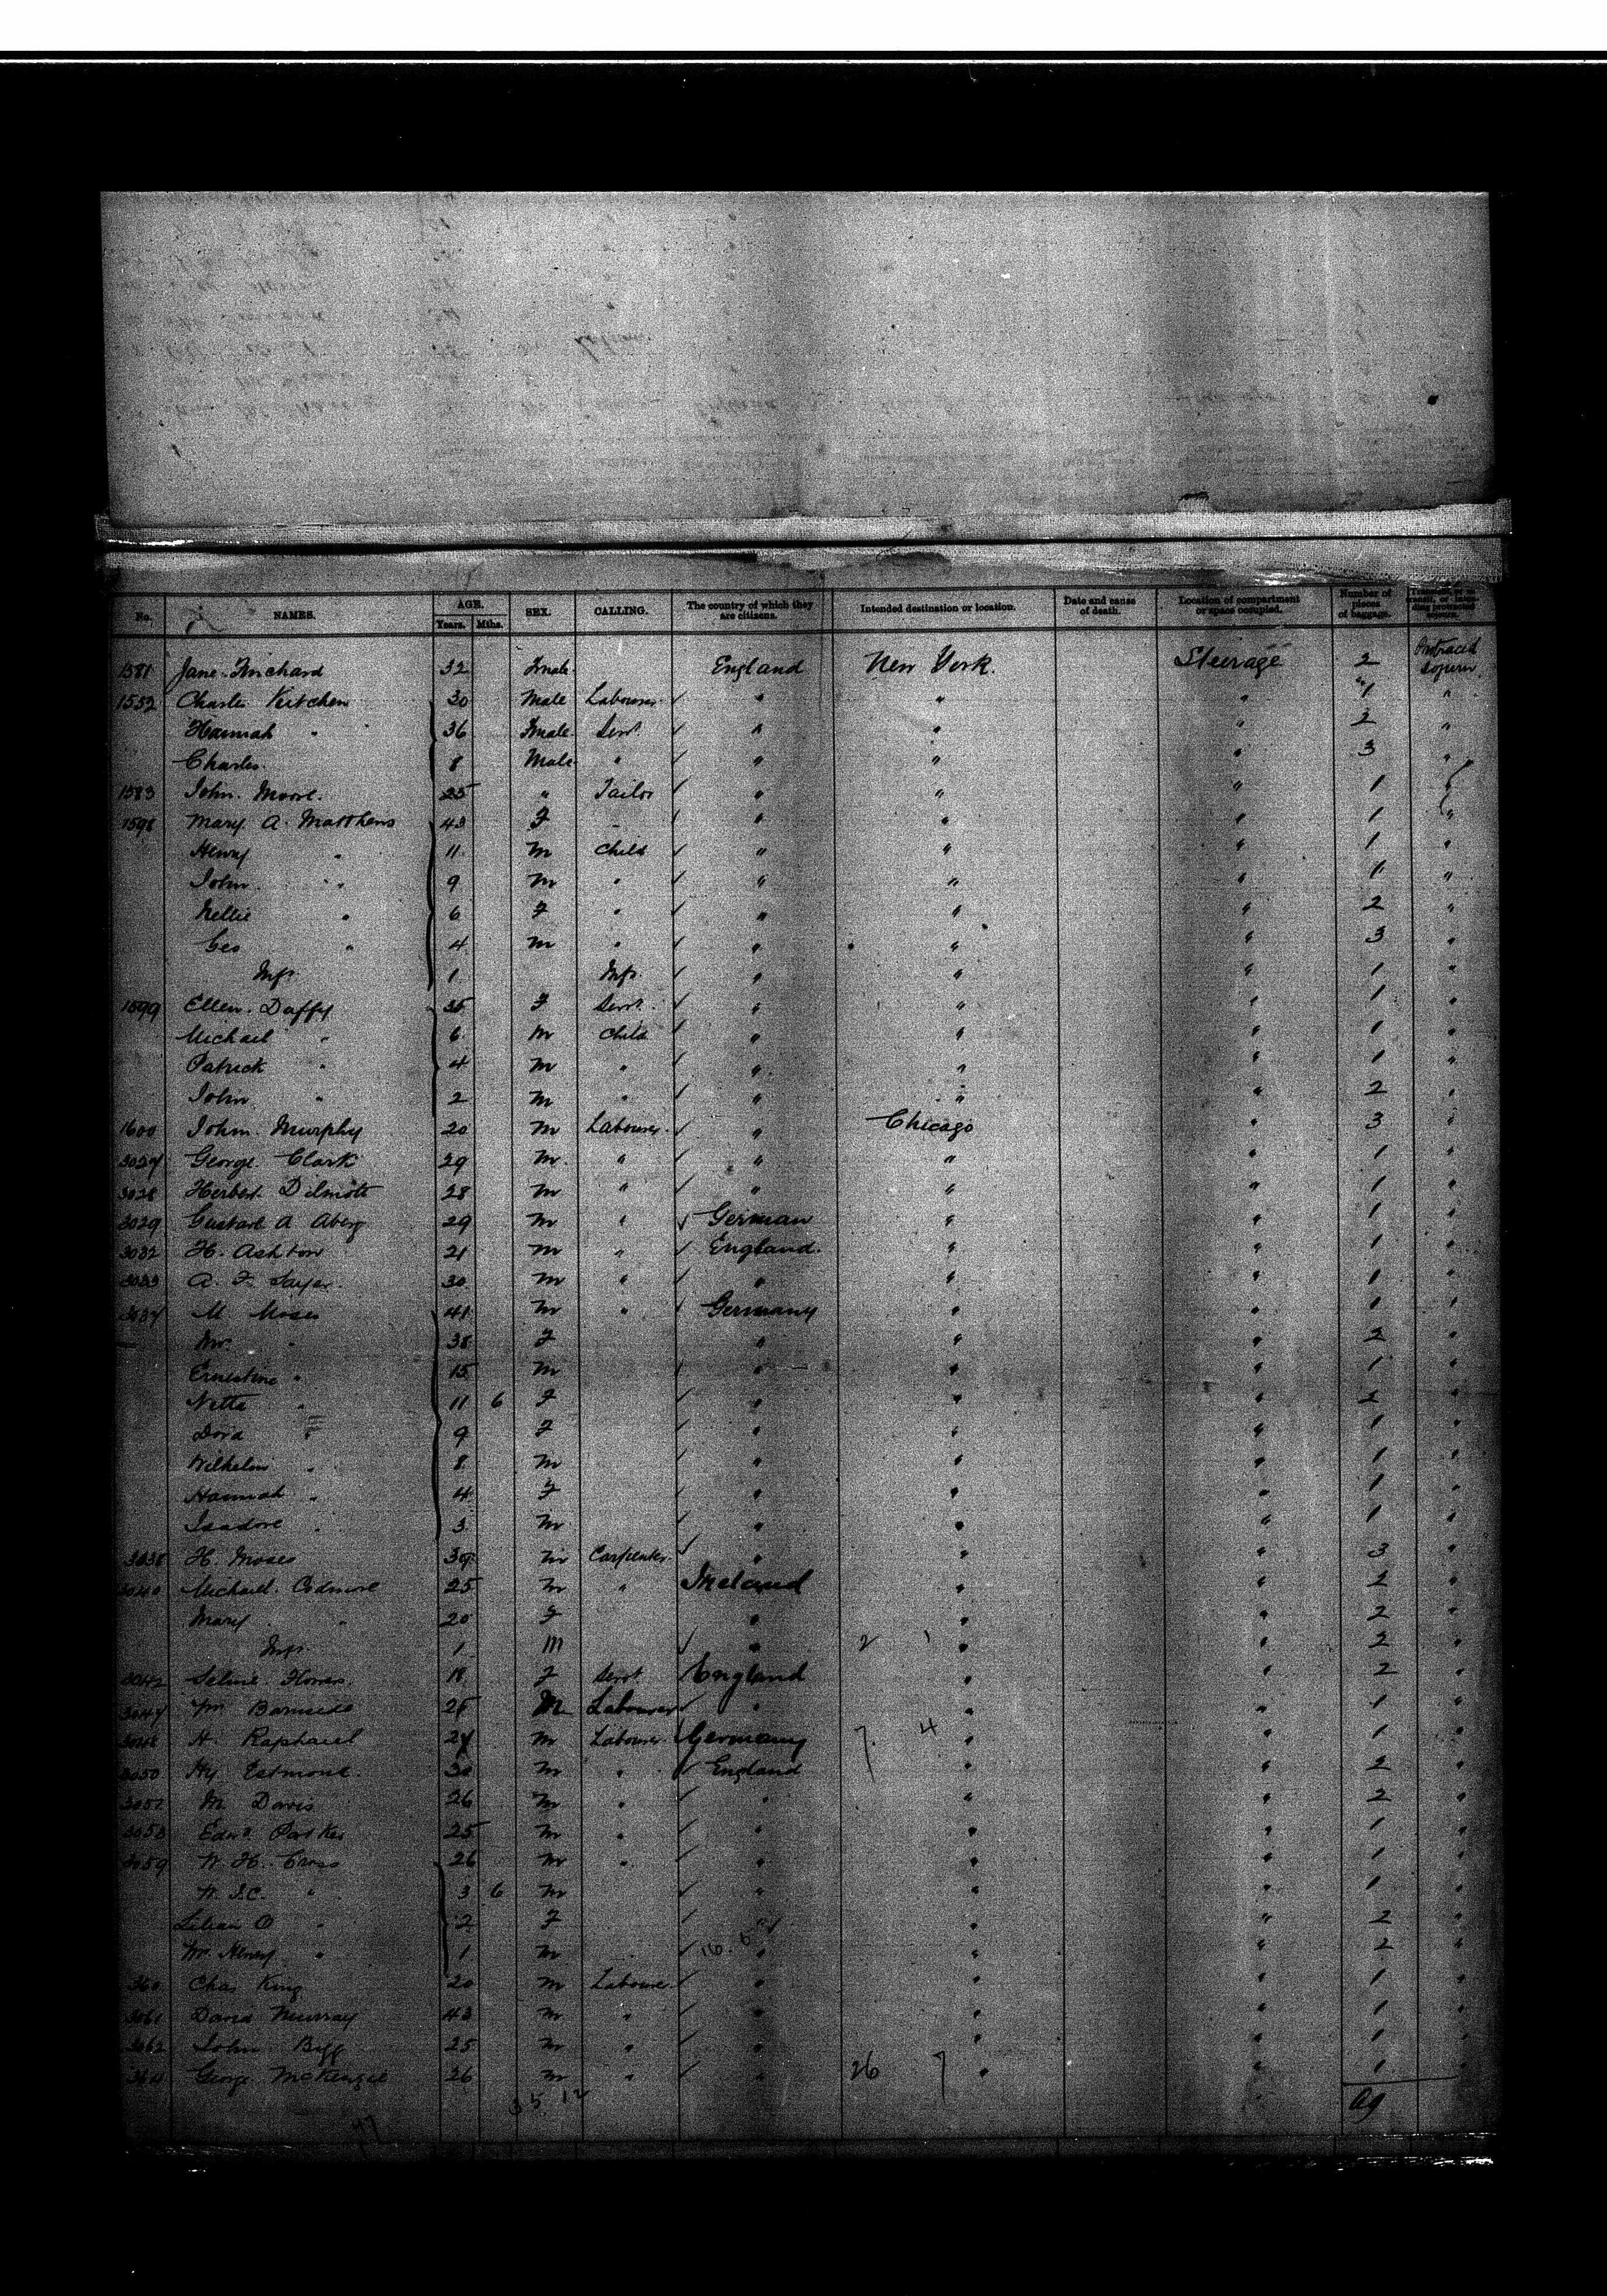 No. NAMES. AGE. Years. Mths. SEX. CALLING. The country of which they are citizens. Intended destination or location. Date and cause of death. Location of compartment or space occupied. Number of pieces of baggage.
1581 Jane 32 Fmale England New York. Steerage 2 Protracted
1552 Charles Kitchen 30 Male Labourer ✓ " " " 1 "
Hannah " 36 Fmale Servt " " " 2 "
Charles 8 Male " ✓ " " " 3 "
1583 John Moore. 25 " Tailor ✓ " " " 1 "
1598 Mary A. Matthews 43 F - ✓ " " " 1 "
Henry " 11 m Child ✓ " " " 1 "
John " 9 m " ✓ " " " 1 "
Nellie " 6 F " ✓ " " " 2 "
Geo " 4 m " ✓ " " " 3 "
Inft 1 Inft ✓ " " " 1 "
1599 Ellen Duffy 35 F Servt. ✓ " " " 1 "
Michael " 6 m Child ✓ " " " 1 "
Patrick " 4 m " ✓ " " " 1 "
John " 2 m " ✓ " " " 2 "
1600 John Murphy 20 m Labourer ✓ " Chicago " 3 "
3027 George Clark 29 m " ✓ " " " 1 "
3028 Herbert 28 m " ✓ " " " 1 "
3029 A Aberg 29 m " ✓ German " " 1 "
3032 H. Ashton 21 m " ✓ England. " " 1 "
3033 A. F. Sayer 30 m " ✓ " " " 1 "
3037 M. Moses 41 m " ✓ Germany " " 1 "
" 38 F " " " 2 "
Ernestine " 15 m ✓ " " " 1 "
Netta " 11 6 F ✓ " " " 2 "
Dora " 9 F ✓ " " " 1 "
Wilhelm " 8 m ✓ " " " 1 "
Hannah " 4 F ✓ " " " 1 "
Isadore " 3 m ✓ " " " 1 "
3038 H. Moses 39 m Carpenter ✓ " " " 3 "
3040 Michael 25 m " Ireland " " 2 "
Mary " 20 F " " " 2 "
Inft 1 m ✓ " 2 1 " " 2 "
3042 18 F Servt England " 2 "
3047 Wm 25 M Labourer ✓ " " " 1 "
3048 H. Raphael 24 m Labourer Germany 7 4 " " 1 "
3050 Hy. 30 m " ✓ England " " 2 "
M. Davis 26 m " ✓ " " " 2 "
3058 Edwd. Parker 25 m " ✓ " " " 1 "
3059 W. H. Cross 26 m " ✓ " " " 1 "
" 3 6 m ✓ " " " 1 "
Lilian O " 2 F ✓ " " " 2 "
Wm Henry " 1 m ✓ 16. 6 " " " 2 "
Chas King 20 m Labourer ✓ " " " 1 "
3061 David Murray 43 m " ✓ " " " 1 "
3062 John 25 m " ✓ " " " 1 "
George McKenzie 26 m " ✓ " 26 7 " " 1 "
47 35 12 69